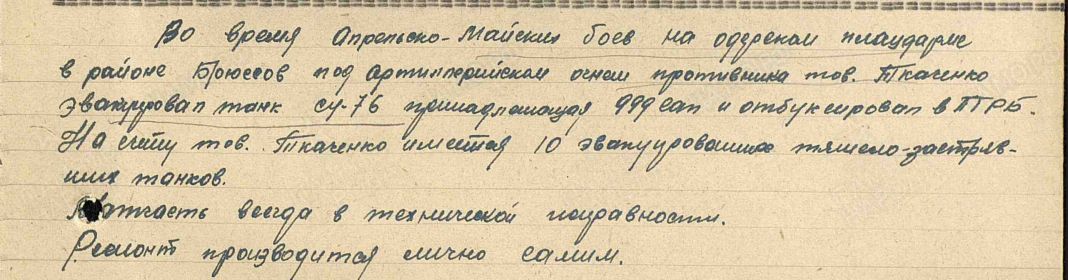 Во время Апрельско-Майских боев на одерском плацдарме
в районе Брюссов под артиллерийском огнем противника тов. Ткаченко
эвакуировал танк су-76 принадлежащая 999 сап и отбуксировал в ПТРБ.
На счету тов. Ткаченко имеется 10 эвакуированных тяжело-застряв-
ших танков.
Матчасть всегда в технической исправности.
Ремонт производится лично самим.